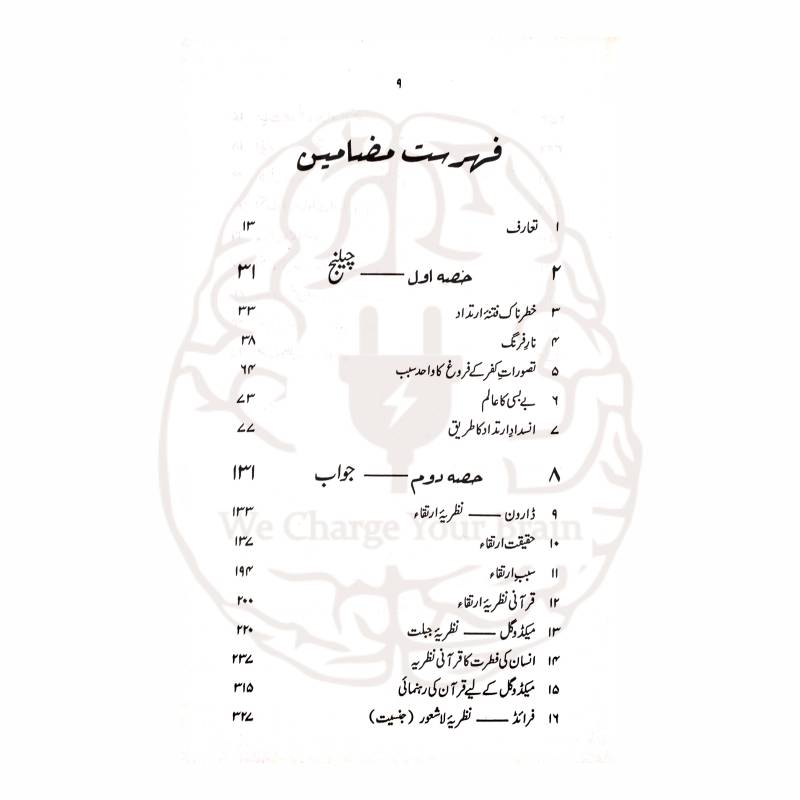 ۹
فہرست مضامین
۱ تعارف ۱۳
۲ حصہ اول —— چیلنج ۳۱
۳ خطرناک فتنۂ ارتداد ۳۳
۴ نارِ فرنگ ۳۸
۵ تصوراتِ کفر کے فروغ کا واحد سبب ۶۴
۶ بے بسی کا عالم ۷۳
۷ انسدادِ ارتداد کا طریق ۷۷
۸ حصہ دوم —— جواب ۱۳۱
۹ ڈارون —— نظریۂ ارتقاء ۱۳۳
۱۰ حقیقت ارتقاء ۱۳۷
We Charge Your Brain
۱۱ سببِ ارتقاء ۱۹۴
۱۲ قرآنی نظریۂ ارتقاء ۲۰۰
۱۳ میکڈوگل —— نظریۂ جبلت ۲۲۰
۱۴ انسان کی فطرت کا قرآنی نظریہ ۲۳۷
۱۵ میکڈوگل کے لیے قرآن کی رہنمائی ۳۱۵
۱۶ فرائڈ —— نظریۂ لاشعور (جنسیت) ۳۲۷